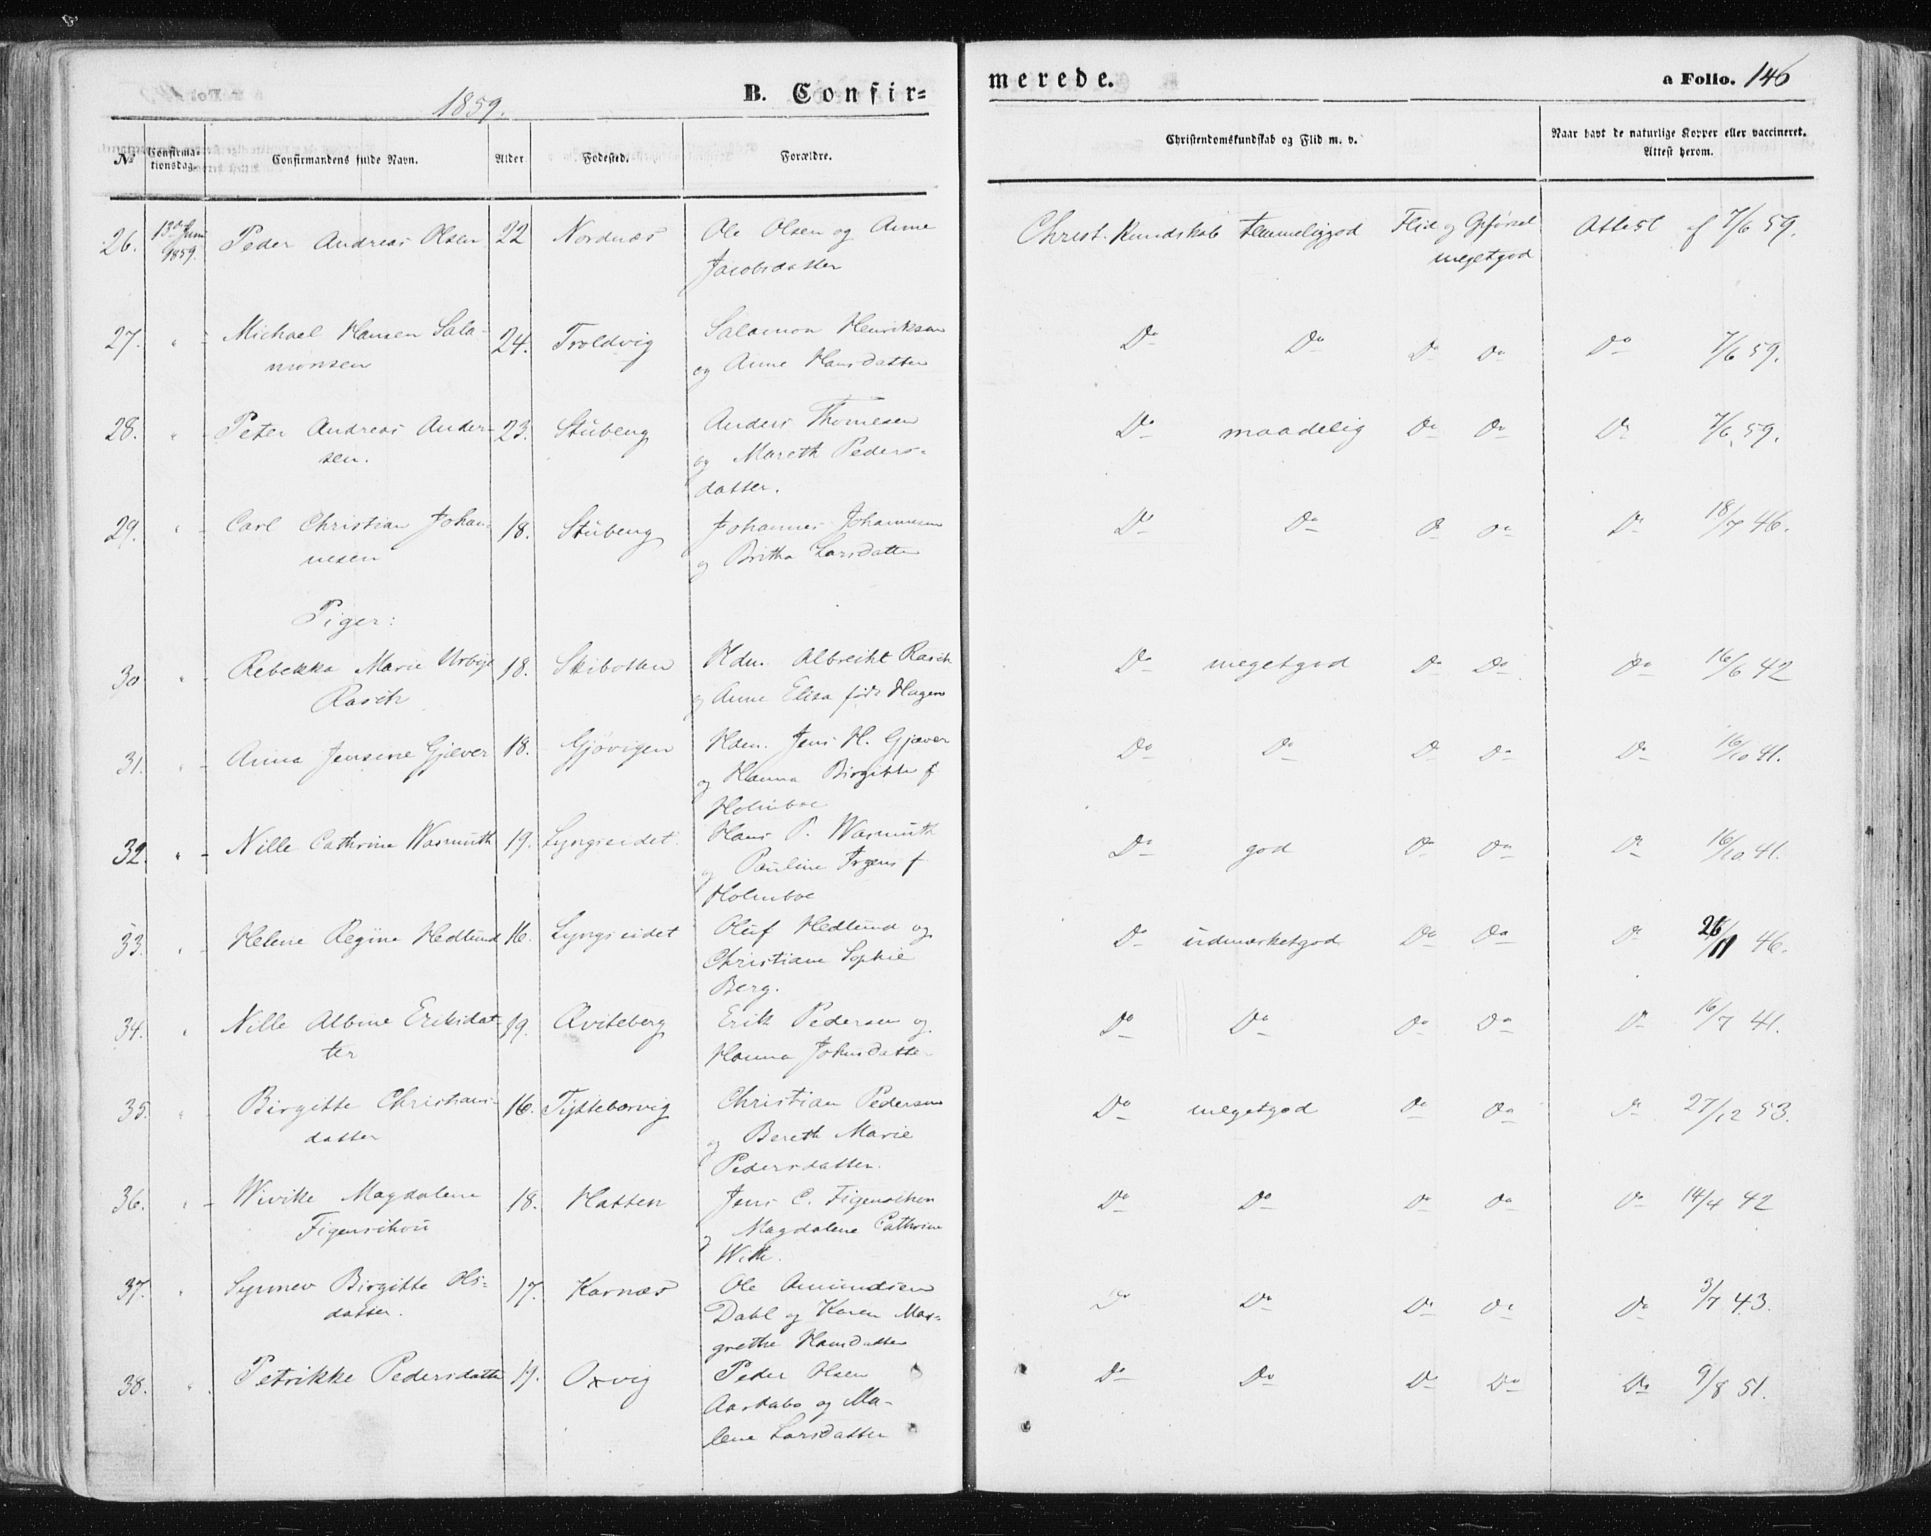 1859.
B. Confir=
merede.
a Folio. 146
No
Confirma-
tionsdag.
Confirmandens fulde Navn.
Alder
Fødested.
Forældre.
Christendomskundskab og Flid m. v.
Naar havt de naturlige Kopper eller vaccineret.
Attest herom.
26. 13de Juni 1859. Peder Andreas Olsen 22 Nordnæs Ole Olsen og Anne Christ. Kundskab temmeliggod Flid og Opførsel Attest af 7/6 59.
Jacobsdatter megetgod
27. " Michael Hansen Sala- 24. Troldvig Salamon Henriksen Do Do Do Do Do 7/6 59.
monsen og Anne Hansdatter
28. " Peter Andreas Ander- 23. Stubeng Anders Thomesen Do maadelig Do Do Do 7/6 59.
sen. og Mareth Peders-
datter.
29. " Carl Christian Johan- 18. Stubeng Johannes Johannesen Do Do Do Do Do 18/7 46.
nesen og Britha Larsdatter
Piger:
30 " Rebekka Marie 18. Skibotten Hdm. Albrecht Rasch Do megetgod Do Do Do 16/6 42
Rasch og Anne Elisa født Hagen
31. " Anna Jensine Gjæver 18. Gjøvigen Hdm. Jens H. Gjæver Do Do Do Do Do 16/10 41.
og Hanna Birgitte f
Holmboe
32. " Nille Cathrine Wasmuth 19. Lyngseidet Hans P. Wasmuth Do god Do Do Do 16/10 41.
og Pauline Irgens f
Holmboe
33. " Helene Regine Hedlund 16. Lyngseidet Oluf Hedlund og Do udmærketgod Do Do Do 26/11 46.
Christiane Sophie
Berg.
34. " Nille Albine Eriksdat- 19. Qviteberg Erik Pedersen og Do Do Do Do Do 16/7 41.
ter Hanna Johnsdatter
35. " Birgitte Christians- 16. Tyttebærvig Christian Pedersen Do megetgod Do Do Do 27/12 53.
datter og Bereth Marie
Pedersdatter.
36. " Wivike Magdalene 18. Hatten Jens C. Figenschou Do Do Do Do Do 14/4 42
Figenschou og Magdalene Cathrine
Wik.
37. " Synnev Birgitte Ols- 17. Karnæs Ole Amundsen Do Do Do Do Do 3/7 43.
datter. Dahl og Karen Mar-
grethe Hansdatter
38. " Petrikke Pedersdatte 19. Oxvig Peder Olsen Do Do Do Do Do 9/8 51.
Aardabo og Ma-
lene Larsdatter